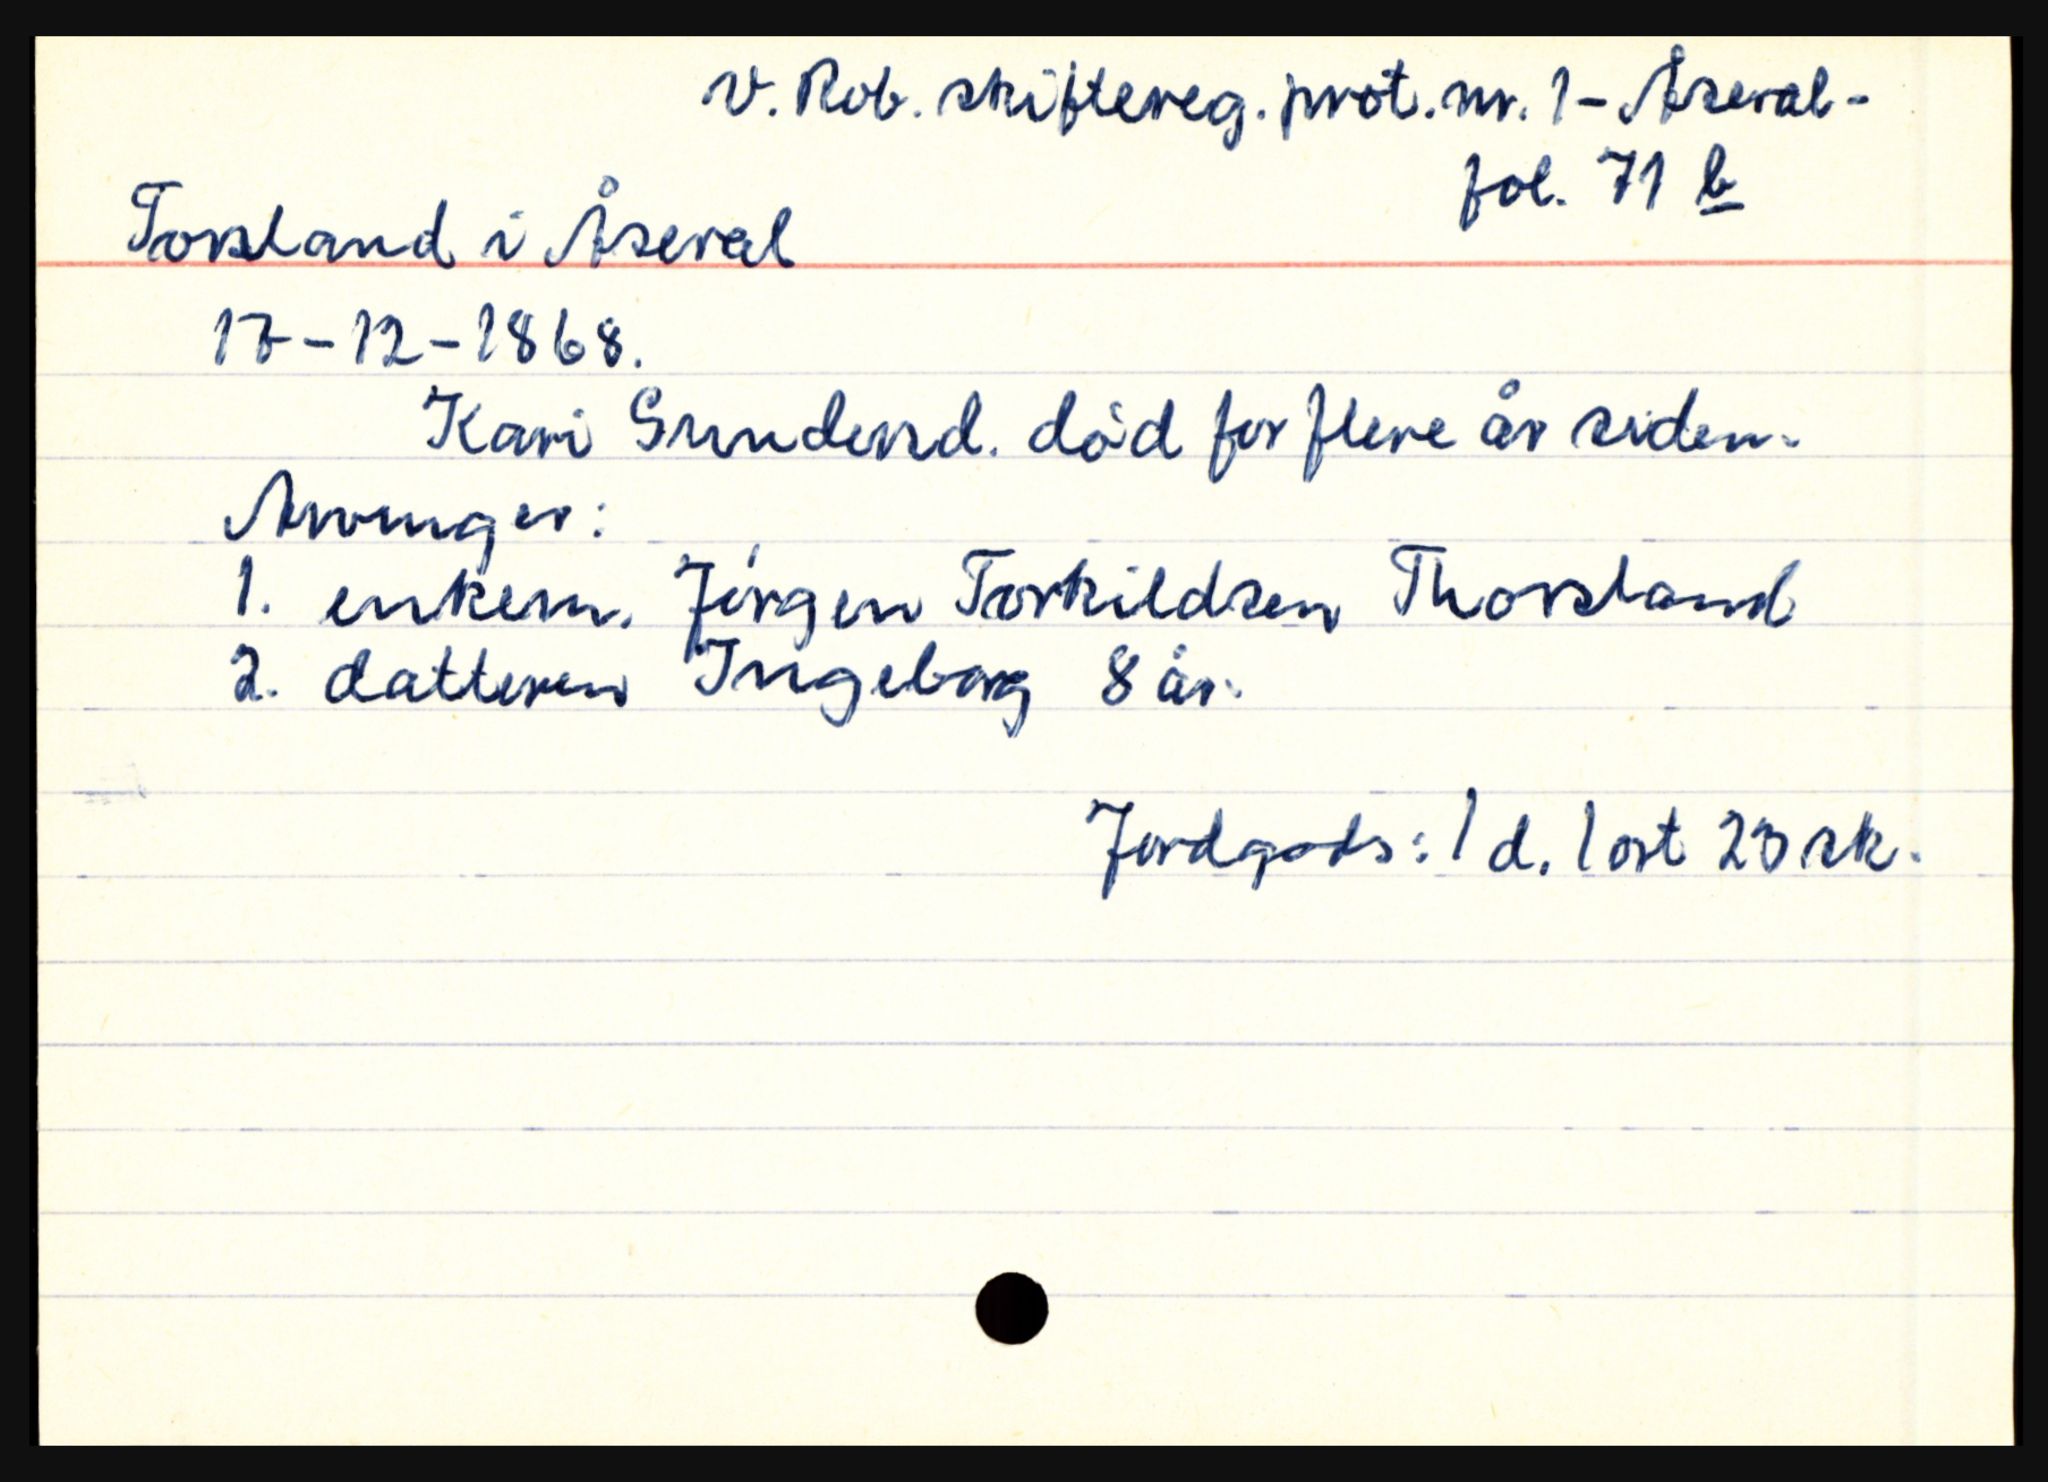 v. Rob. skiftereg. prot. nr. 1 - Åseral -
fol. 71 b
Torsland i Åseral
17-12-1868.
Kari Gundersd. død for flere år siden.
Arvinger:
1. enkem. Jörgen Torkildsen Thorsland
2. datteren Ingeborg 8 år.
Jordgods: 1 d. 1 ort 23 sk.